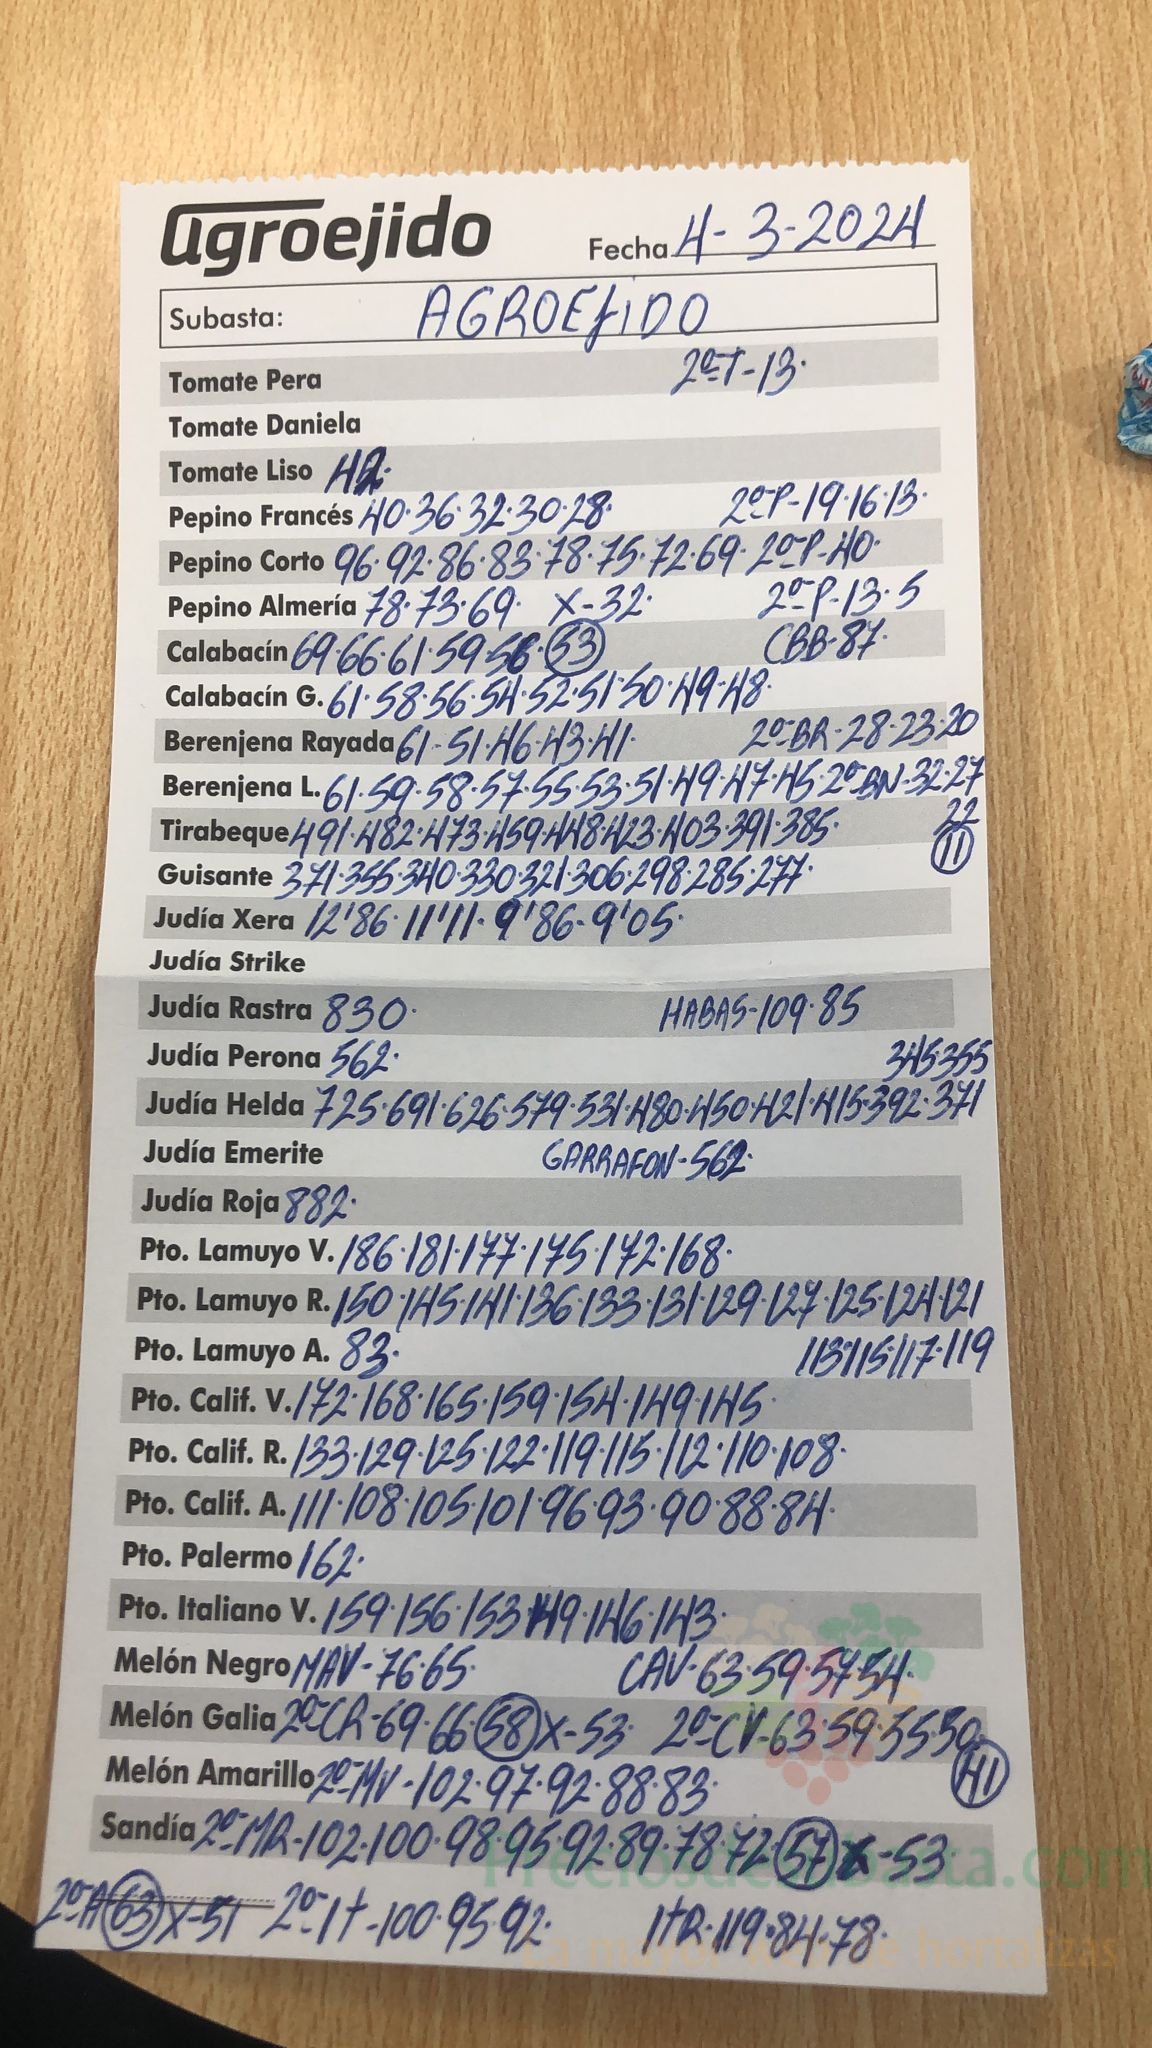 agroejido
Fecha 4-3-2024
Subasta: AGROEJIDO
Tomate Pera 2ºT-13.
Tomate Daniela
Tomate Liso 42.
Pepino Francés 40.36.32.30.28. 2ºP-19.16.13.
Pepino Corto 96.92.86.83.78.75.72.69. 2ºP-40.
Pepino Almería 78.73.69. X-32. 2ºP-13.5
Calabacín 69.66.61.59.56.53 CBB-87.
Calabacín G. 61.58.56.54.52.51.50.49.48.
Berenjena Rayada 61-51.46.43.41. 2ºBR-28.23.20
Berenjena L. 61.59.58.57.55.53.51.49.47.45. 2ºBN-32.27
22
Tirabeque 491.482.473.459.448.423.403.391.385.
11
Guisante 371.355.340.330.321.306.298.285.277.
Judía Xera 12'86.11'11.9'86.9'05.
Judía Strike
Judía Rastra 830. HABAS-109.85
Judía Perona 562. 345.355
Judía Helda 725.691.626.579.531.480.450.421.415.392.371
Judía Emerite GARRAFON-562.
Judía Roja 882.
Pto. Lamuyo V. 186.181.177.175.172.168.
Pto. Lamuyo R. 150.145.141.136.133.131.129.127.125.124.121
Pto. Lamuyo A. 83. 113.115.117.119
Pto. Calif. V. 172.168.165.159.154.149.145.
Pto. Calif. R. 133.129.125.122.119.115.112.110.108.
Pto. Calif. A. 111.108.105.101.96.93.90.88.84.
Pto. Palermo 162.
Pto. Italiano V. 159.156.153.149.146.143.
Melón Negro MAV-76.65. CAV-63.59.57.54.
Melón Galia 2ºCR-69.66.58 X-53. 2ºCV-63.59.55.50.
41
Melón Amarillo 2ºMV-102.97.92.88.83.
Sandía 2ºMR-102.100.98.95.92.89.78.72.57 X-53
2ºA 63 X-51 2ºIt-100.95.92. ItR-119.84.78.
Preciosdesubasta.com
La mayor web de hortalizas